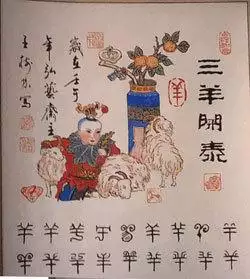 三羊開泰
羊
歲在壬午
年弘藝齋主
王樹
寫
羊羊羊羊羊羊羊羊羊
羊羊羊羊羊羊羊羊羊